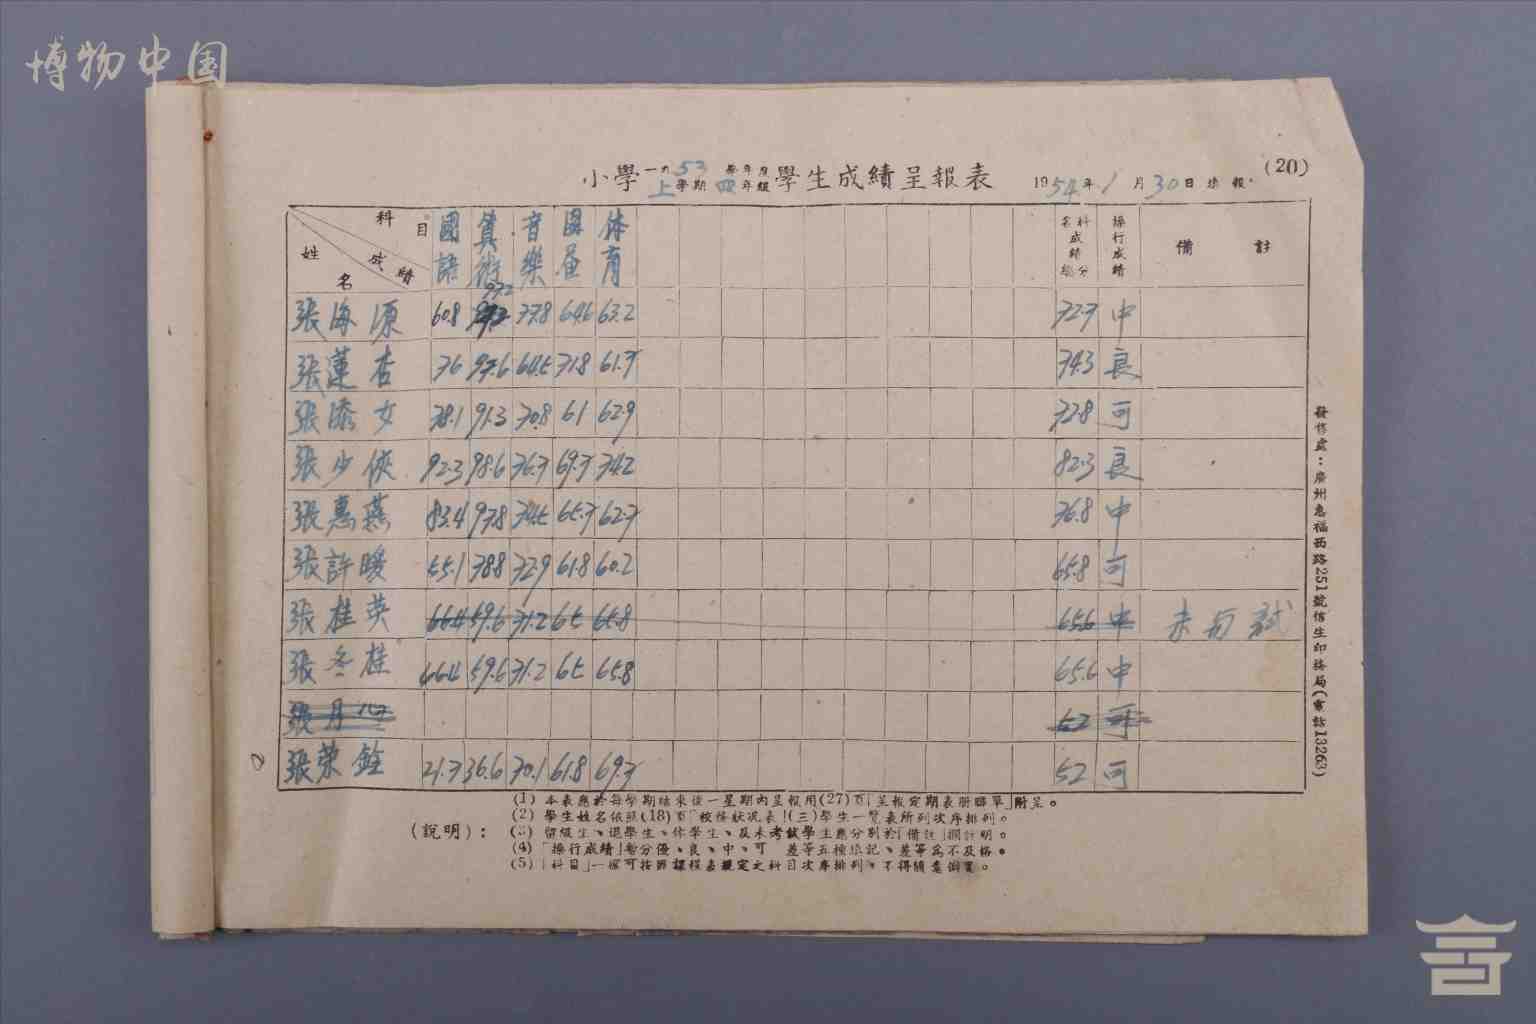 博物中国
(20)
小學一九53學年度上學期四年級學生成績呈報表 1954年1月30日填報
科目 成績 姓名 國語 算術 音樂 圖畫 体育 各科成績總分 操行成績 備註
張海源 60.8 97.2 77.8 64.6 63.2 72.7 中
張蓮杏 76 97.6 64.5 71.8 61.7 74.3 良
張添女 78.1 91.3 70.8 61 62.9 72.8 可
張少俠 92.3 98.6 76.7 69.7 74.2 82.3 良
張惠燕 83.4 97.8 74.5 65.7 62.7 76.8 中
張許暖 55.1 78.8 72.9 61.8 60.2 65.8 可
張桂英 66.4 59.6 71.2 65 65.8 65.6 中 未与試
張冬桂 66.4 59.6 71.2 65 65.8 65.6 中
張月 52 可
張榮銓 21.7 36.6 70.1 61.8 69.7 52 可
(說明):
(1) 本表應於每學期結束後一星期內呈報用(27)頁「呈報定期表冊聯單」附呈。
(2) 學生姓名依照(18)頁「校務狀況表」(三)學生一覽表所列次序排列。
(3) 留級生、退學生、休學生、及未考試學生應分別於「備註」欄註明。
(4) 「操行成績」暫分優、良、中、可 差等五種填記、差等為不及格。
(5) 「科目」一欄可按照課程表規定之科目次序排列、不得隨意倒置。
發售處:廣州惠福西路251號信生印務局(電話13263)